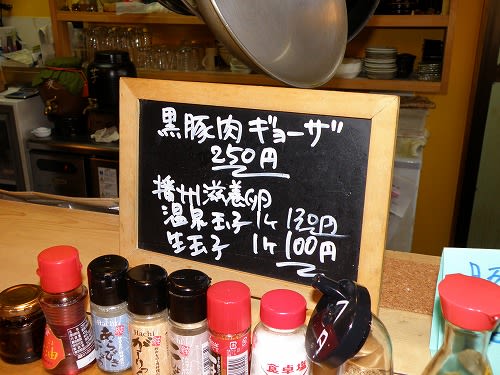 黒豚肉ギョーザ
250円
播州滋養卵
温泉玉子 1ヶ 130円
生玉子 1ヶ 100円
食卓塩